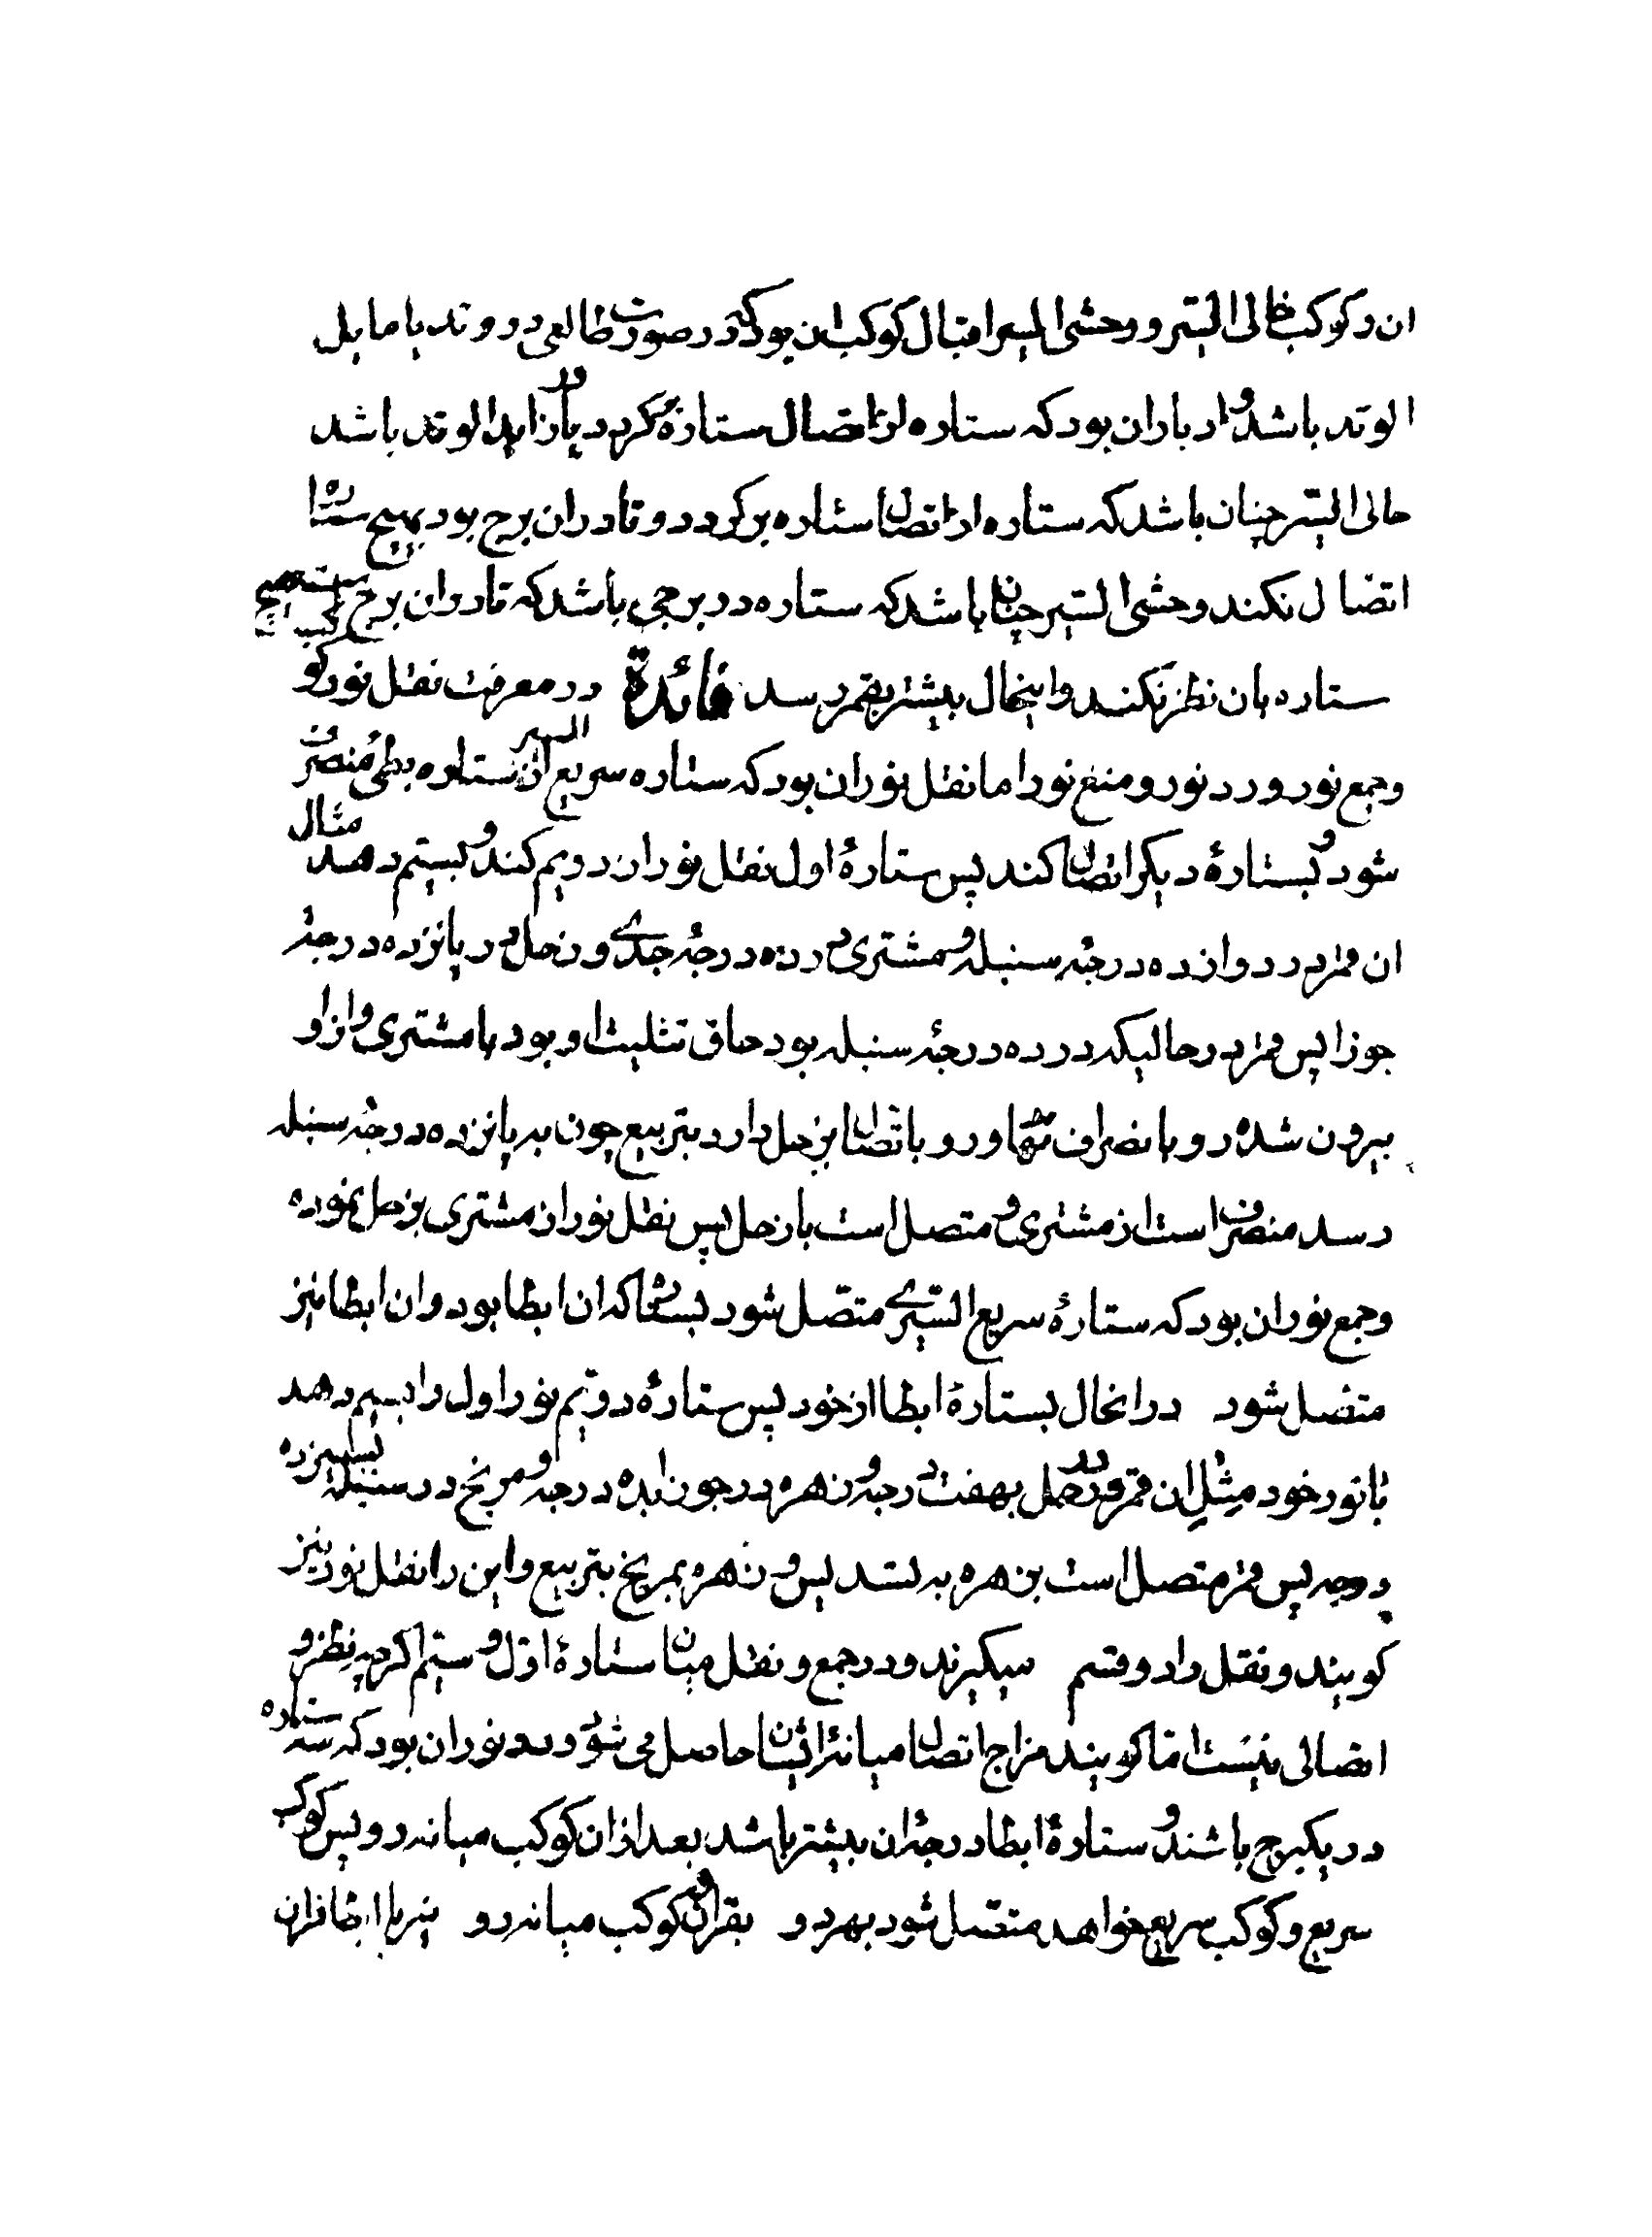 ان و کوکب خالی السیر و وحشی السیر اقبال کوکب ان بود که در صورت طالعی در وتد یا مایل
الوتد باشد و ادباران بود که ستاره از اتصال ستارۀ کردد یا در زایل الوتد باشد
خالی السیر چنان باشد که ستاره از اتصال ستاره برکردد و تا در ان برج بود بهیچ ستاره
اتصال نکند وحشی السیر چنان باشد که ستاره در برجی باشد که تا در ان برج هیچ
ستاره بان نظر نکند و اینحال بیشتر بقمر رسد فائدة در معرفت نقل نور کو
و جمع نور و رد نور و منع نور اما نقل نور ان بود که ستاره سریع السیر از ستاره بطی منصرف
شود و بستارۀ دیکر اتصال کند پس ستارۀ اول نقل نور ان دویم کند و بسیم دهد مثال
ان قمر در دوازده درجۀ سنبله و مشتری در ده درجۀ جدی و زحل در پانزده درجۀ
جوزا پس قمر در حالیکه در ده درجۀ سنبله بود حاق تثلیث او بود با مشتری و از او
بیرون شده رو بانصراف نهاد و رو باتصال زحل دارد بتربیع چون به پانزده درجۀ سنبله
رسد منصرف است از مشتری و متصل است با زحل پس نقل نور از مشتری بزحل نموده
و جمع نور ان بود که ستارۀ سریع السیری متصل شود بستارۀ که ان ابطا بود و ان ابطا نیز
متصل شود در انحال بستارۀ ابطا از خود پس ستارۀ دویم نور اول را بسیم دهد
با نور خود مثل ان قمر در حمل بهفت درجه و زهره در جوزا بده درجه و مریخ در سنبله بسیزده
درجه پس قمر متصل است بزهره به تسدیس و زهره بمریخ بتربیع و این را نقل نور نیز
کویند و نقل را دو قسم میکیرند و در جمع و نقل میان ستارۀ اول و سیم اکرچه نظر و
اتصالی نیست اما کویند مزاج اتصال میانۀ ایشان حاصل می شود و رد نور ان بود که سه ستاره
در یکبرج باشند و ستارۀ ابطا درجۀ ان بیشتر باشد بعد از ان کوکب میانه رو پس کوکب
سریع و کوکب سریع خواهد متصل شود بهر دو بقران و کوکب میانه رو نیز با ابطا قران